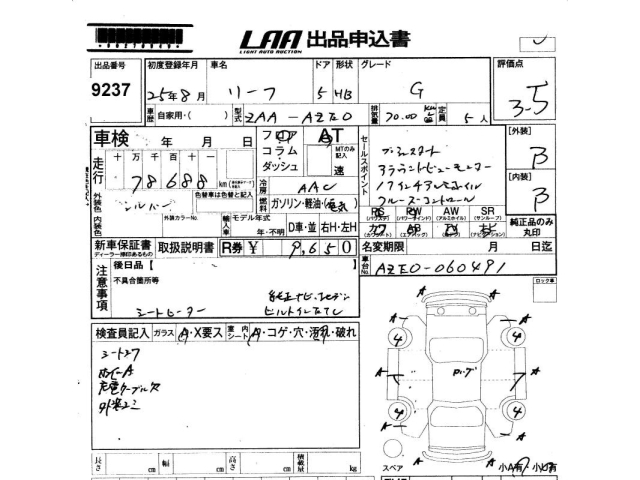 LAA 出品申込書
LIGHT AUTO AUCTION
出品番号 初度登録年月 車名 ドア 形状 グレード 評価点
9237 25年8月 リーフ 5 HB G 3-5
車歴 自家用・( ) 型式 ZAA-AZE0 排気量 定員 5人
車検 年 月 日
フロア AT
コラム
ダッシュ MTのみ記入 速
セールスポイント
プッシュスタート
アラウンドビューモニター
17インチアルミホイル
クルーズコントロール
[外装]
B
[内装]
B
走行 十 万 千 百 十 一
78688 km
冷房 AAC
燃料 ガソリン・軽油・(電気)
外装色 シルバー 色替車は色替と記入
内装色 外装カラーNo.
輸入車 モデル年式 年・不明 D車・並 右H・左H
PS RW AW SR
(パワステ) (パワーウインド) (アルミホイル) (サンルーフ)
カワ AB TV ナビ
(カワシート) (エアバッグ) (ナビゲーション)
純正品のみ丸印
新車保証書 取扱説明書 R券 ¥ 9,650
ディーラー捺印あるもの
名変期限 月 日迄
車台No. AZE0-060491
注意事項
後日品【 】
不具合箇所等
シートヒーター
純正ナビ、
ビルトインETC
ロック車
検査員記入 ガラス A・X要ス 室内シート A・コゲ・穴・汚れ・破れ
シートスレ
ホイールA
充電ケーブル欠
外装
長さ cm 幅 cm 高さ cm 積載量 kg
スペア 小A有 小U有